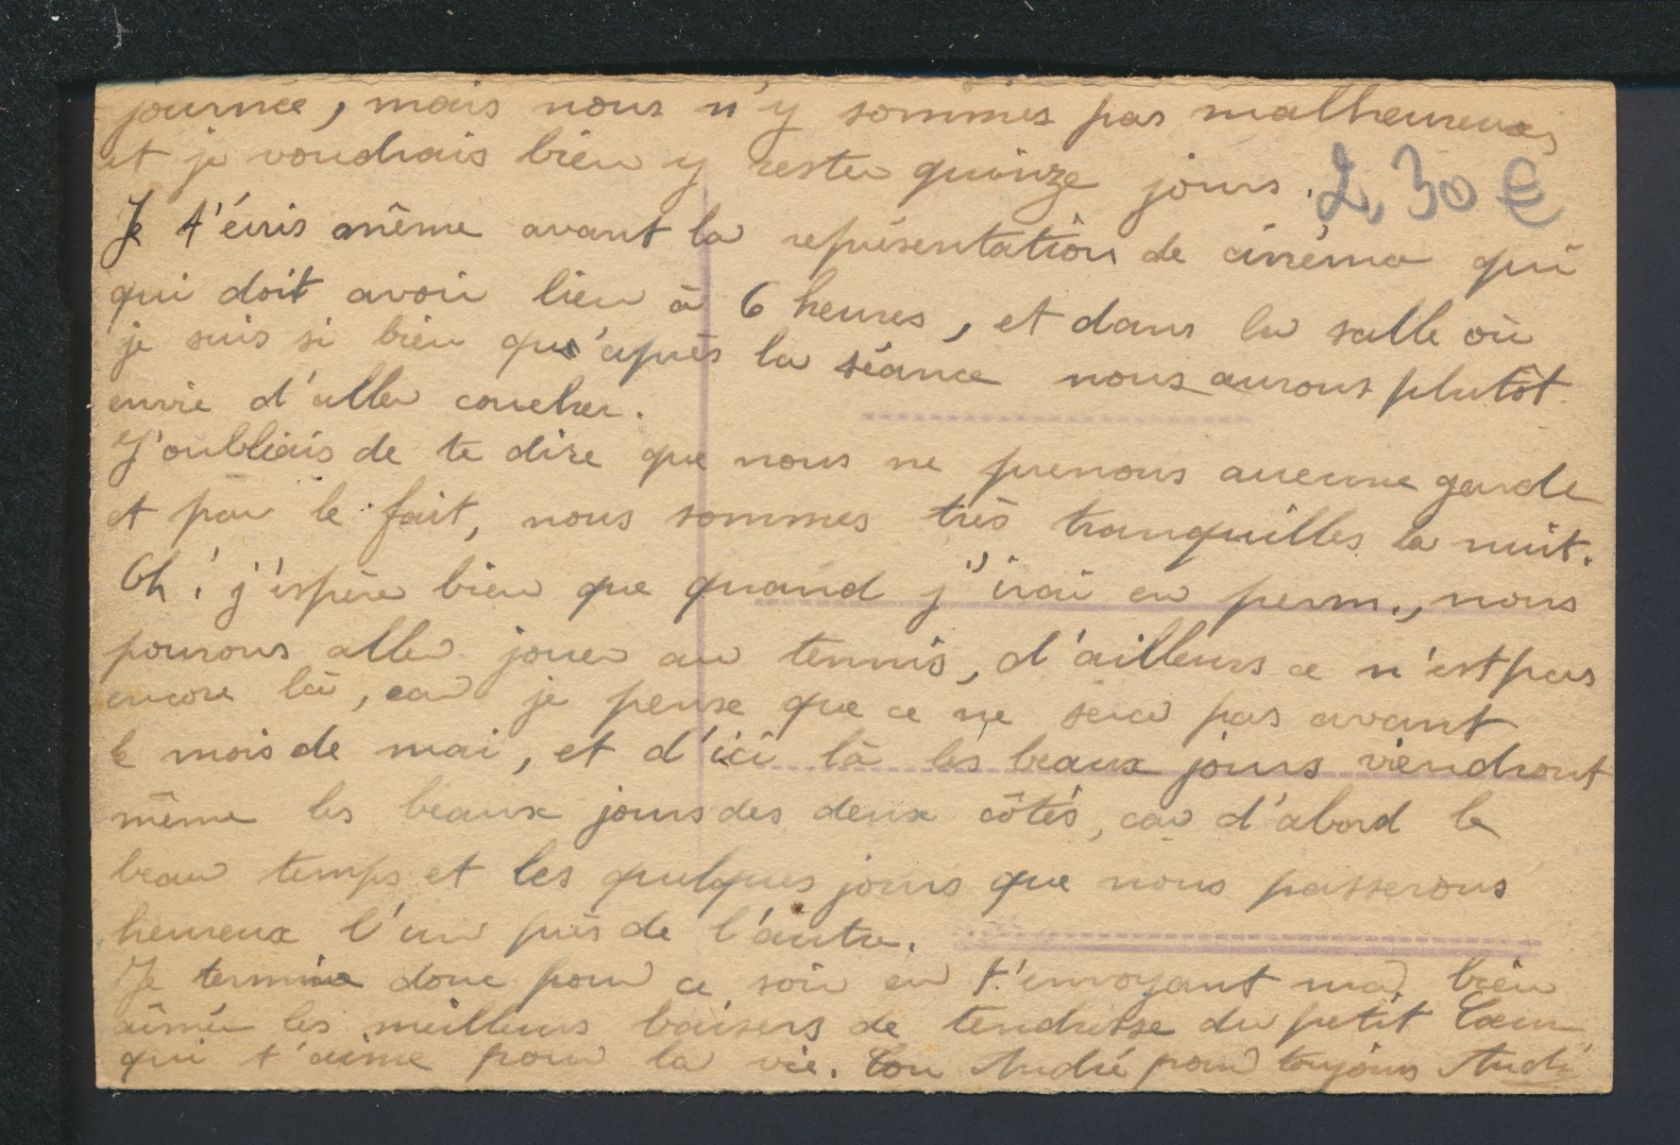 journée, mais nous n'y sommes pas malheureux,
et je voudrais bien y rester quinze jours.
2,30 €
Je t'écris même avant la représentation de cinéma qui
qui doit avoir lieu à 6 heures, et dans la salle où
je suis si bien qu'après la séance nous aurons plutôt
envie d'aller coucher.
J'oubliais de te dire que nous ne prenons aucune garde
et par le fait, nous sommes très tranquilles la nuit.
Oh! j'espère bien que quand j'irai en perm., nous
pourons aller jouer au tennis, d'ailleurs ce n'est pas
encore là, car je pense que ce ne sera pas avant
le mois de mai, et d'ici là les beaux jours viendront
même les beaux jours des deux côtés, car d'abord le
beau temps et les quelques jours que nous passerons
heureux l'un près de l'autre.
Je termine donc pour ce soir en t'envoyant ma bien
aimée les meilleurs baisers de tendresse du petit Cœur
qui t'aime pour la vie. Ton André pour toujours André